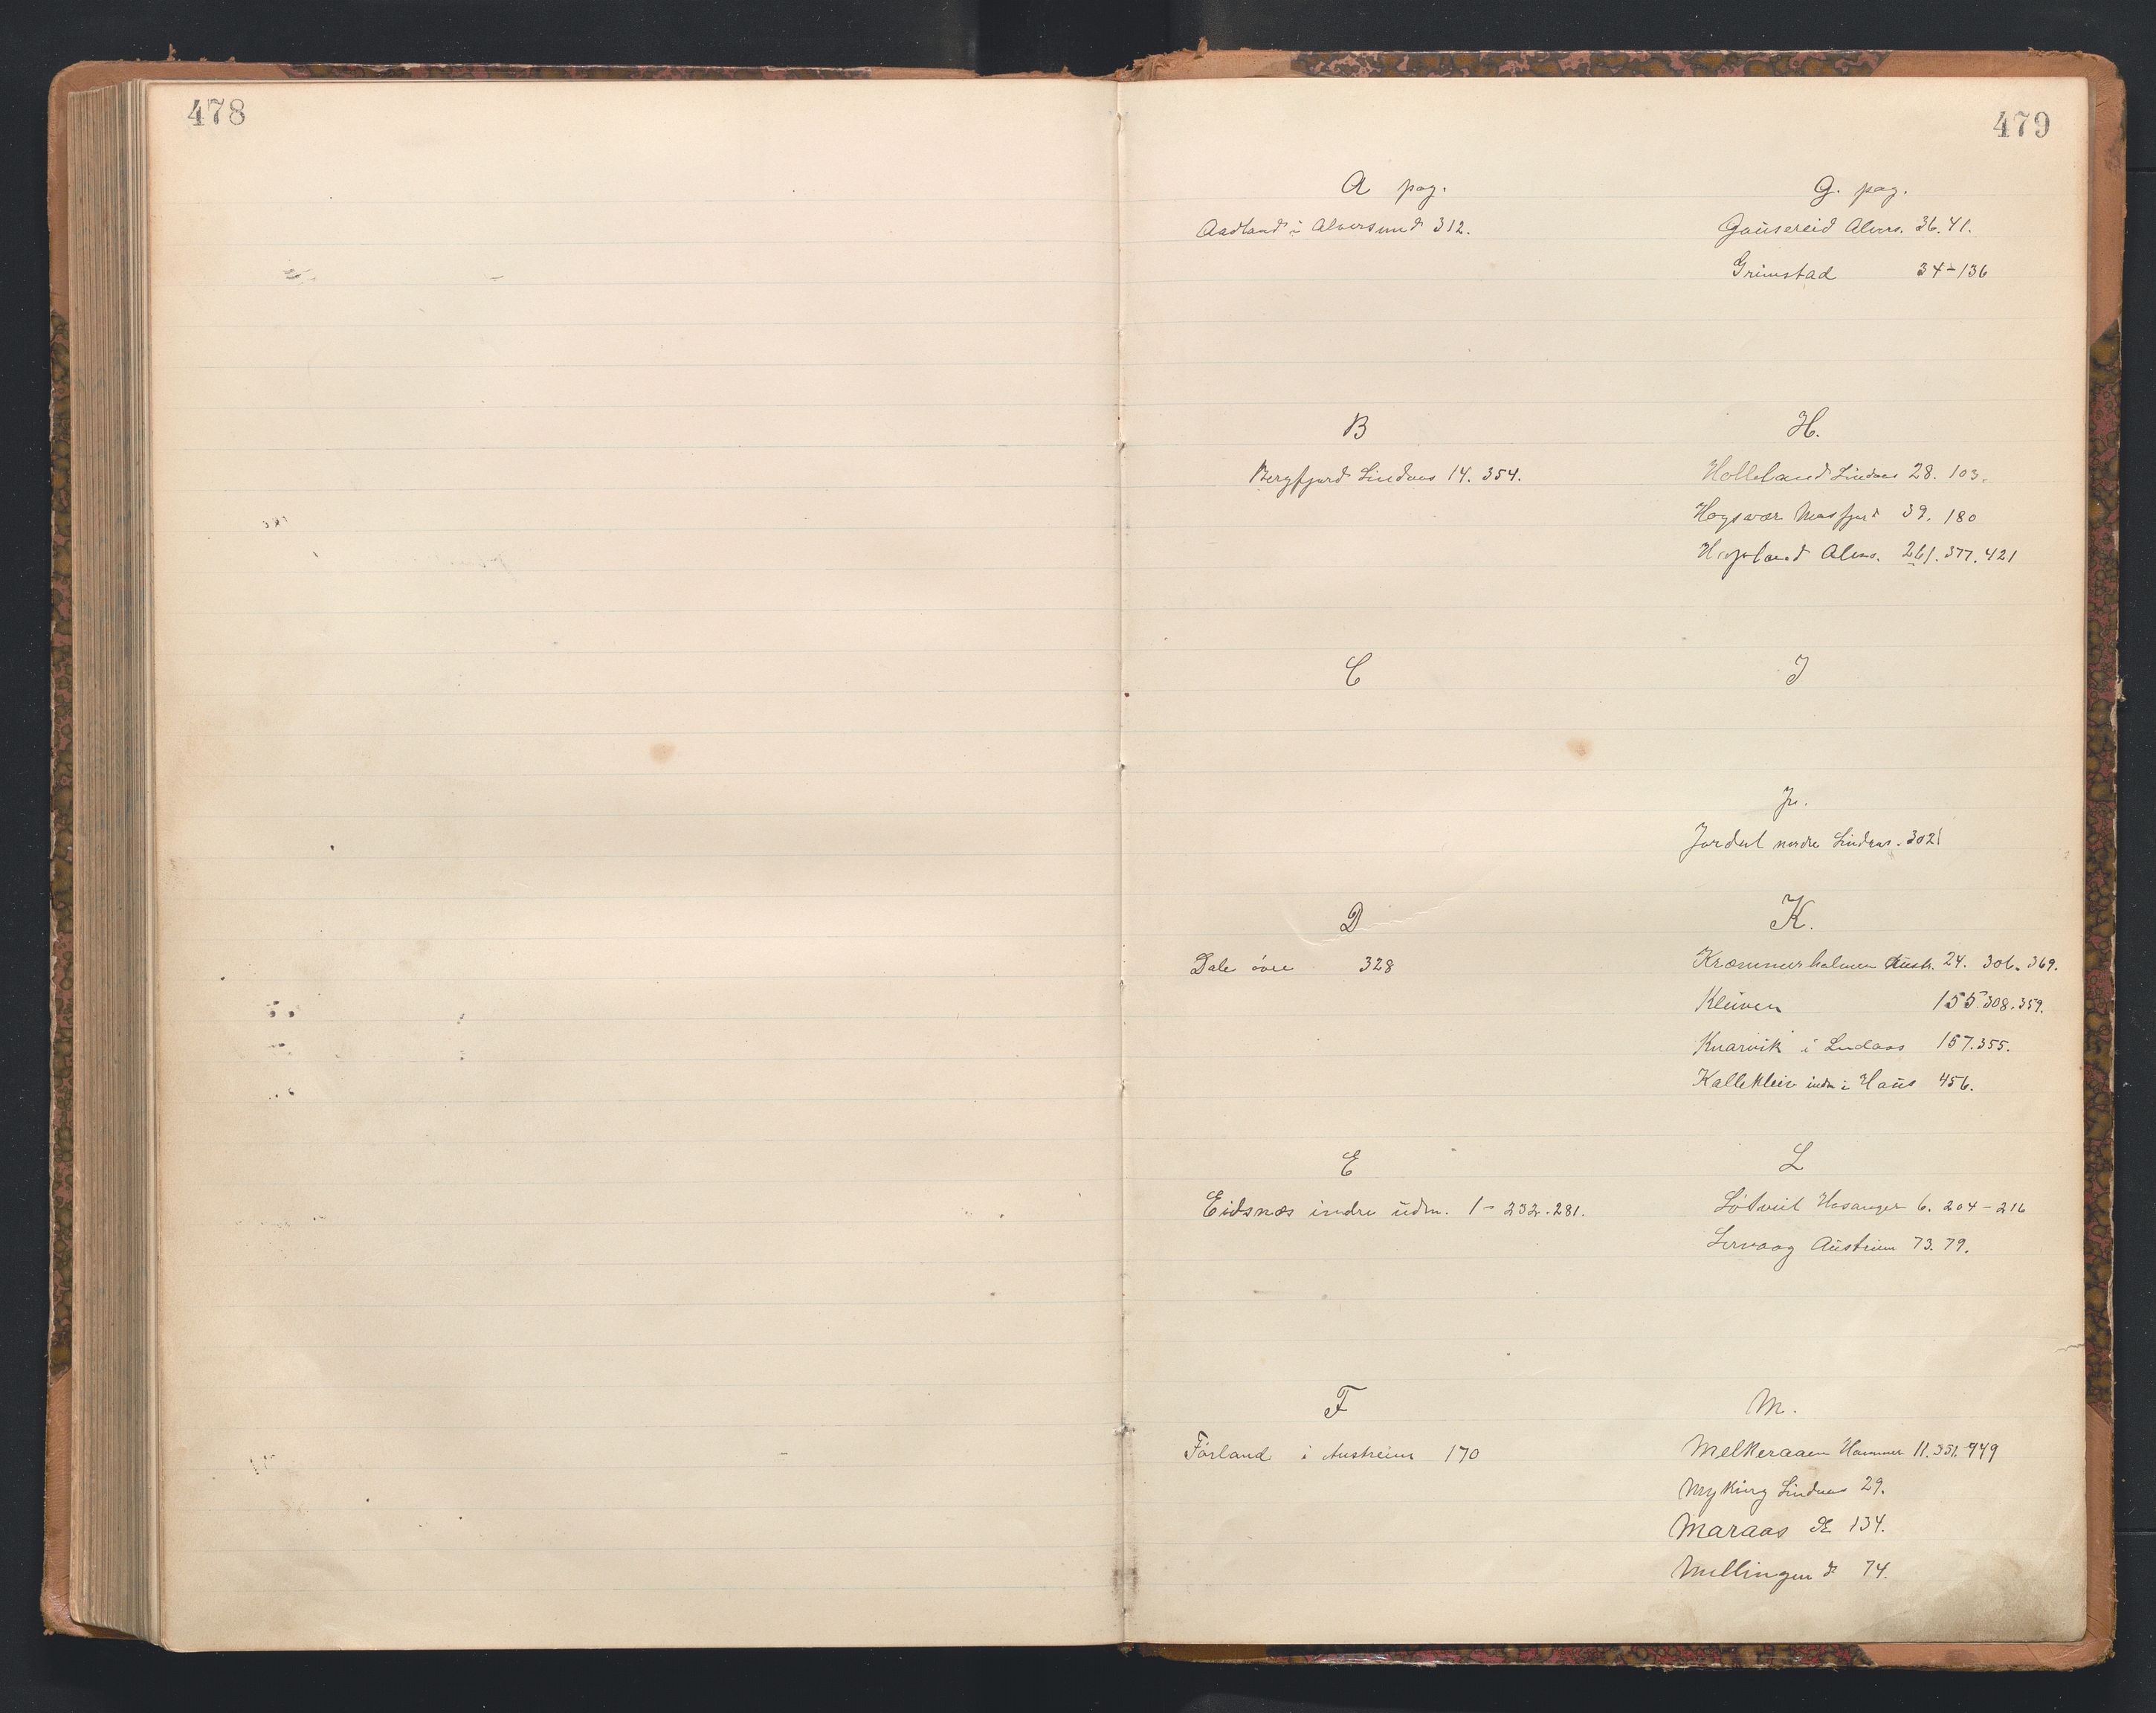 478
479
A pag.
Aadland i Alversund 312.
B
Bergfjord Lindaas 14. 354.
C
D
Dale övre 328
E
Eidsnæs indre üdm. 1 - 232. 281.
F
Förland i Austreim 170
G. pag.
Gaüsereid Alvers. 36. 41.
Grimstad 34-136
H.
Holleland Lindaas 28. 103.
Hogsvær Masfjord 39. 180
Hopland Alvers. 261. 377. 421
I
J
Jordal nordre Lindaas. 302
K.
Kræmmerholmen Austr. 24. 306. 369.
Kleiven 155. 308. 359.
Knarvik i Lindaas 157. 355.
Kallekleiv indre i Haüs 456.
L
Lötveit Hosanger 6. 204 - 216
Lervaag Aüstreim 73. 79.
M.
Melkeraaen Hammer 11. 351. 449
Myking Lindaas 29.
Maraas do 134.
Mellingen do 74.